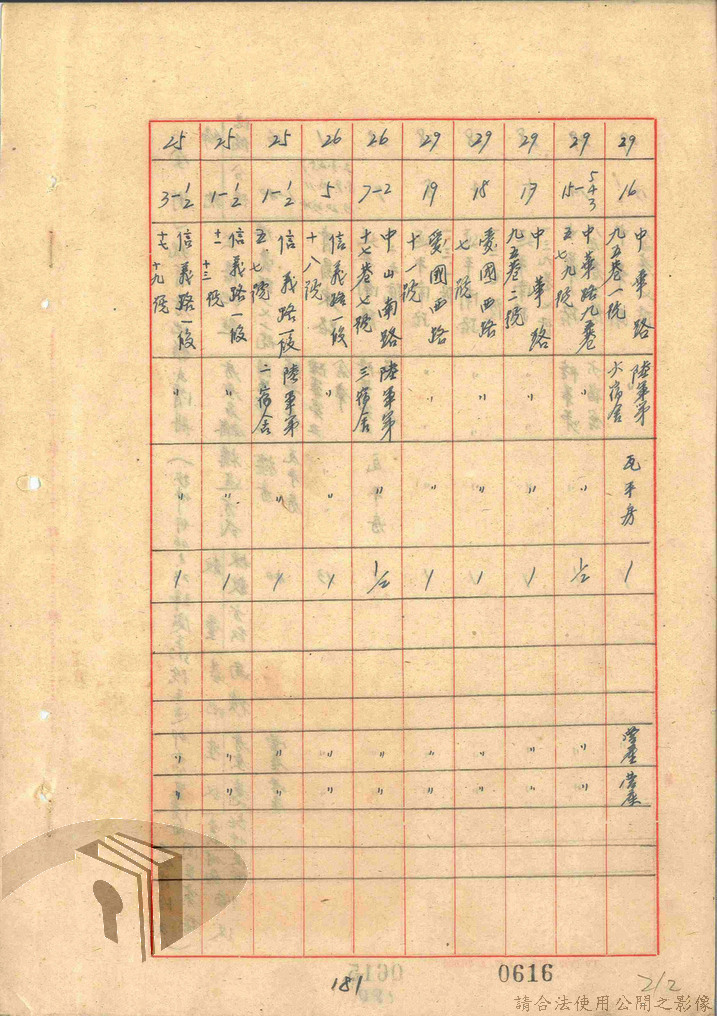 29
16
中華路
九五巷一號
陸軍第
六宿舍
瓦平房
1
營產
營產
29
15-543
中華路九五巷
五七九號
〃
〃
1/2
〃
〃
29
17
中華路
九五巷二號
〃
〃
1
〃
〃
29
18
愛國西路
七號
〃
〃
1
〃
〃
29
19
愛國西路
十一號
〃
〃
1
〃
〃
26
7-2
中山南路
十七巷七號
陸軍第
三宿舍
〃
1/2
〃
〃
26
5
信義路一段
十八號
〃
〃
1
〃
〃
25
1-1/2
信義路一段
五七號
陸軍第
二宿舍
〃
1
〃
〃
25
1-1/2
信義路一段
十一十三號
〃
〃
1
〃
〃
25
3-1/2
信義路一段
十七十九號
〃
〃
1
〃
〃
181
0616
2/2
請合法使用公開之影像